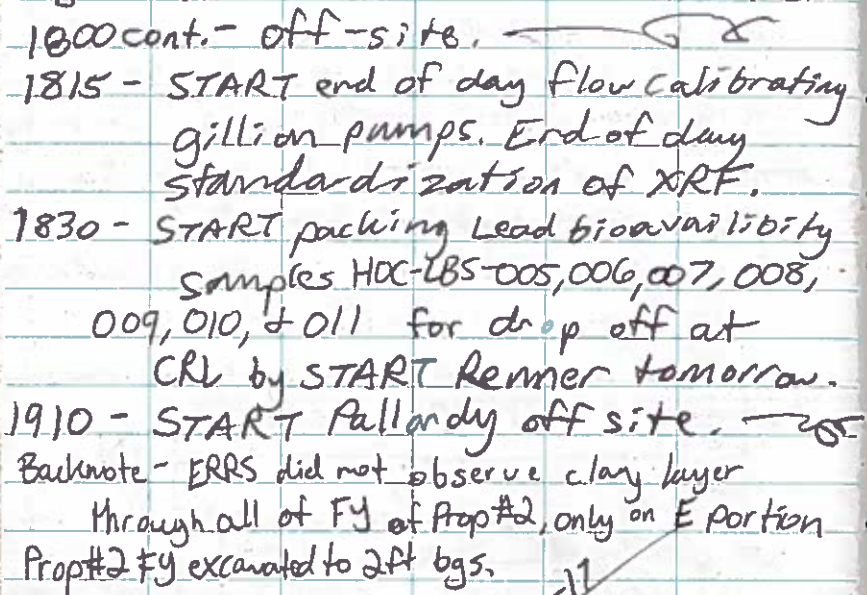 1800 cont. - off-site.
1815 - START end of day flow calibrating
gillian pumps. End of day
standardization of XRF.
1830 - START packing Lead bioavailibity
samples HOC-LBS-005, 006, 007, 008,
009, 010, & 011 for drop off at
CRL by START Renner tomorrow.
1910 - START Pallandy off site.
Backnote - ERRS did not observe clay layer
through all of FY of Prop #2, only on E portion
Prop #2 FY excavated to 2ft bgs.